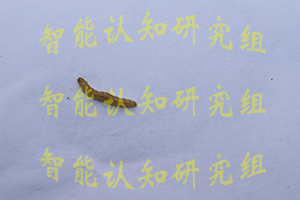 智能认知研究组
智能认知研究组
智能认知研究组